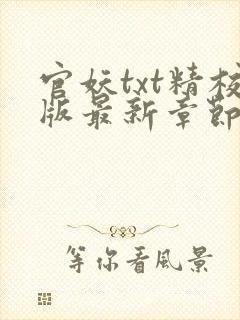 官妖txt精校
版最新章節
等你看風景